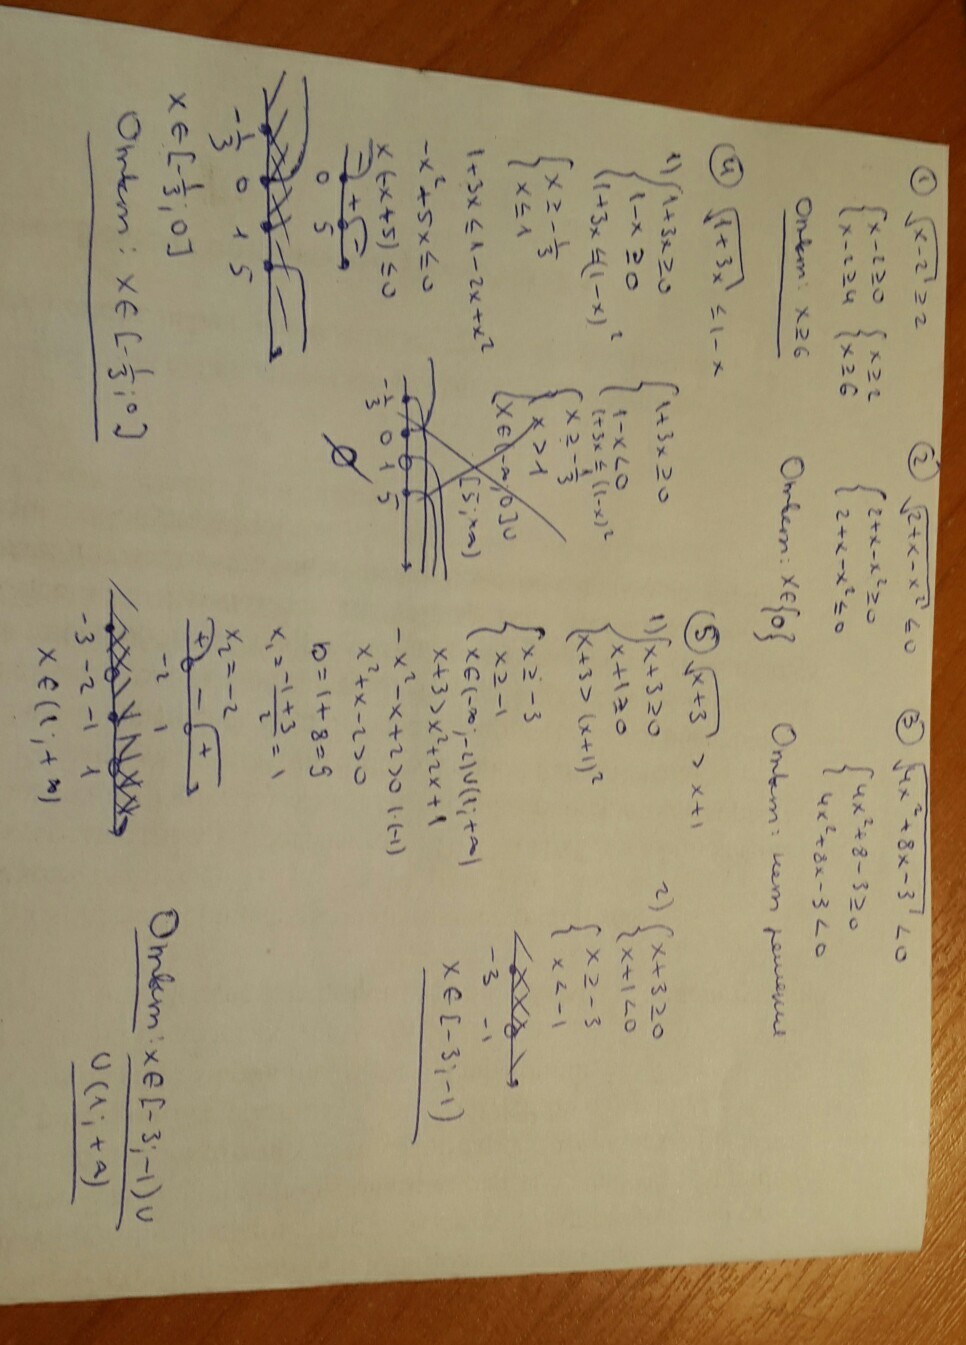 ① √x-2 ≥ 2
{x-2≥0 {x≥2
{x-2≥4 {x≥6
Ответ: x≥6
② √2+x-x² ≤0
{2+x-x²≥0
{2+x-x²≤0
Ответ: x∈{0}
③ √4x²+8x-3 <0
{4x²+8-3≥0
{4x²+8x-3<0
Ответ: нет решение
④ √1+3x ≤ 1-x
1) {1+3x≥0
{1-x≥0
{1+3x≤(1-x)²
{x≥-1/3
{x≤1
1+3x≤1-2x+x²
-x²+5x≤0
x(-x+5)≤0
- + -
0 5
-1/3 0 1 5
x∈[-1/3;0]
Ответ: x∈[-1/3;0]
{1+3x≥0
{1-x<0
{1+3x≤(1-x)²
{x≥-1/3
{x>1
{x∈(-∞;0]∪
[5;+∞)
-1/3 0 1 5
∅
⑤ √x+3 > x+1
1) {x+3≥0
{x+1≥0
{x+3>(x+1)²
{x≥-3
{x≥-1
{x∈(-∞;-2)∪(1;+∞)
x+3>x²+2x+1
-x²-x+2>0 |:(-1)
x²+x-2>0
D=1+8=9
x₁=-1+3/2=1
x₂=-2
+ - +
-2 1
-3 -2 -1 1
x∈(1;+∞)
2) {x+3≥0
{x+1<0
{x≥-3
{x<-1
-3 -1
x∈[-3;-1)
Ответ: x∈[-3;-1)∪
∪(1;+∞)